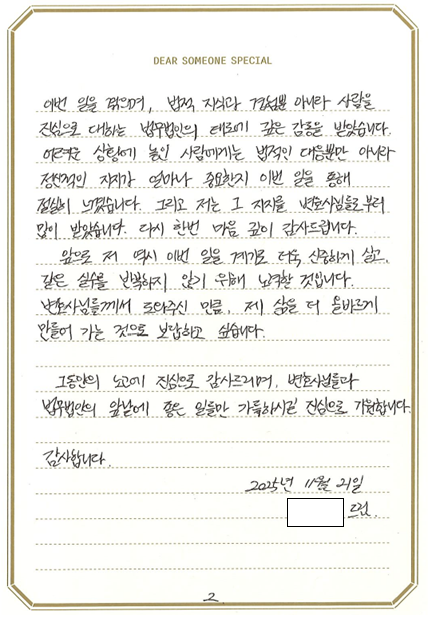 DEAR SOMEONE SPECIAL
이번 일을 겪으며, 법적 지식과 경험뿐 아니라 사람을
진심으로 대하는 법무법인의 태도에 깊은 감동을 받았습니다.
어려운 상황에 놓인 사람에게는 법적인 대응뿐만 아니라
정신적인 지지가 얼마나 중요한지 이번 일을 통해
절실히 느꼈습니다. 그리고 저는 그 지지를 변호사님들로부터
많이 받았습니다. 다시 한번 마음 깊이 감사드립니다.
앞으로 저 역시 이번 일을 계기로 더욱 신중하게 살고,
같은 실수를 반복하지 않기 위해 노력할 것입니다.
변호사님들께서 도와주신 만큼, 제 삶을 더 올바르게
만들어 가는 것으로 보답하고 싶습니다.
그동안의 노고에 진심으로 감사드리며, 변호사님들과
법무법인의 앞날에 좋은 일들만 가득하시길 진심으로 기원합니다.
감사합니다.
2025년 11월 21일
드림.
2